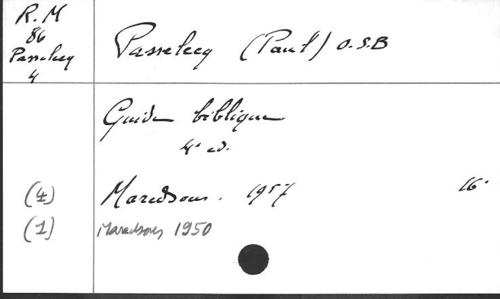 R.M
86
Passelecq
4
Passelecq (Paul) O.S.B
Guide biblique
4e ed.
(4) Maredsous. 1957 16°
(1) Maredsous 1950